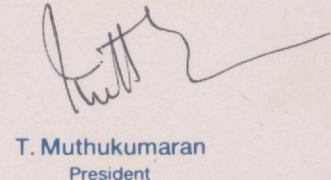 T. Muthukumaran
President